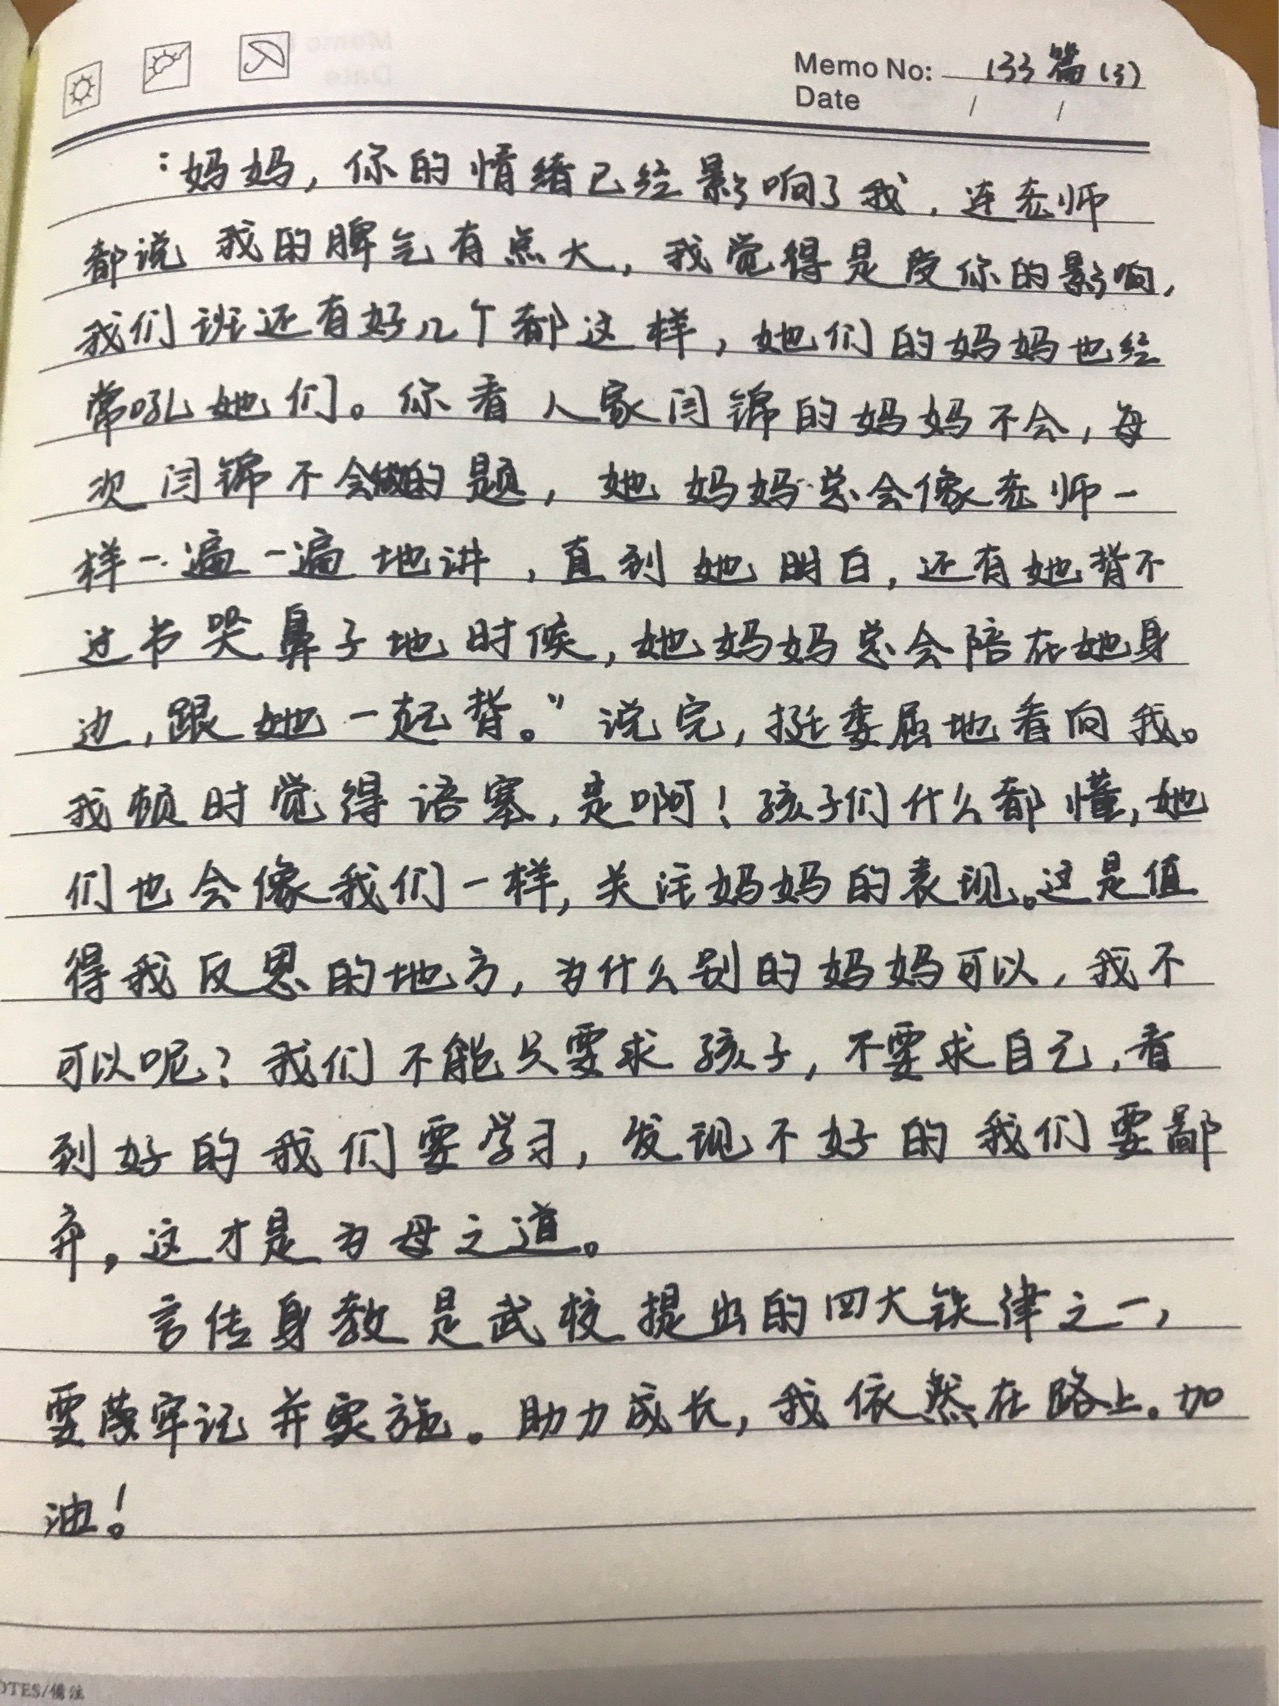 Memo No: 133篇(3)
Date / /
:妈妈,你的情绪已经影响了我,连老师
都说我的脾气有点大,我觉得是受你的影响,
我们班还有好几个都这样,她们的妈妈也经
常吼她们。你看人家闫锦的妈妈不会,每
次闫锦不会做的题,她妈妈总会像老师一
样一遍一遍地讲,直到她明白,还有她背不
过书哭鼻子地时候,她妈妈总会陪在她身
边,跟她一起背。”说完,挺委屈地看向我。
我顿时觉得语塞,是啊!孩子们什么都懂,她
们也会像我们一样,关注妈妈的表现。这是值
得我反思的地方,为什么别的妈妈可以,我不
可以呢?我们不能只要求孩子,不要求自己,看
到好的我们要学习,发现不好的我们要鄙
弃,这才是为母之道。
言传身教是武校提出的四大铁律之一,
要牢记并实施。助力成长,我依然在路上。加
油!
OTES/备注